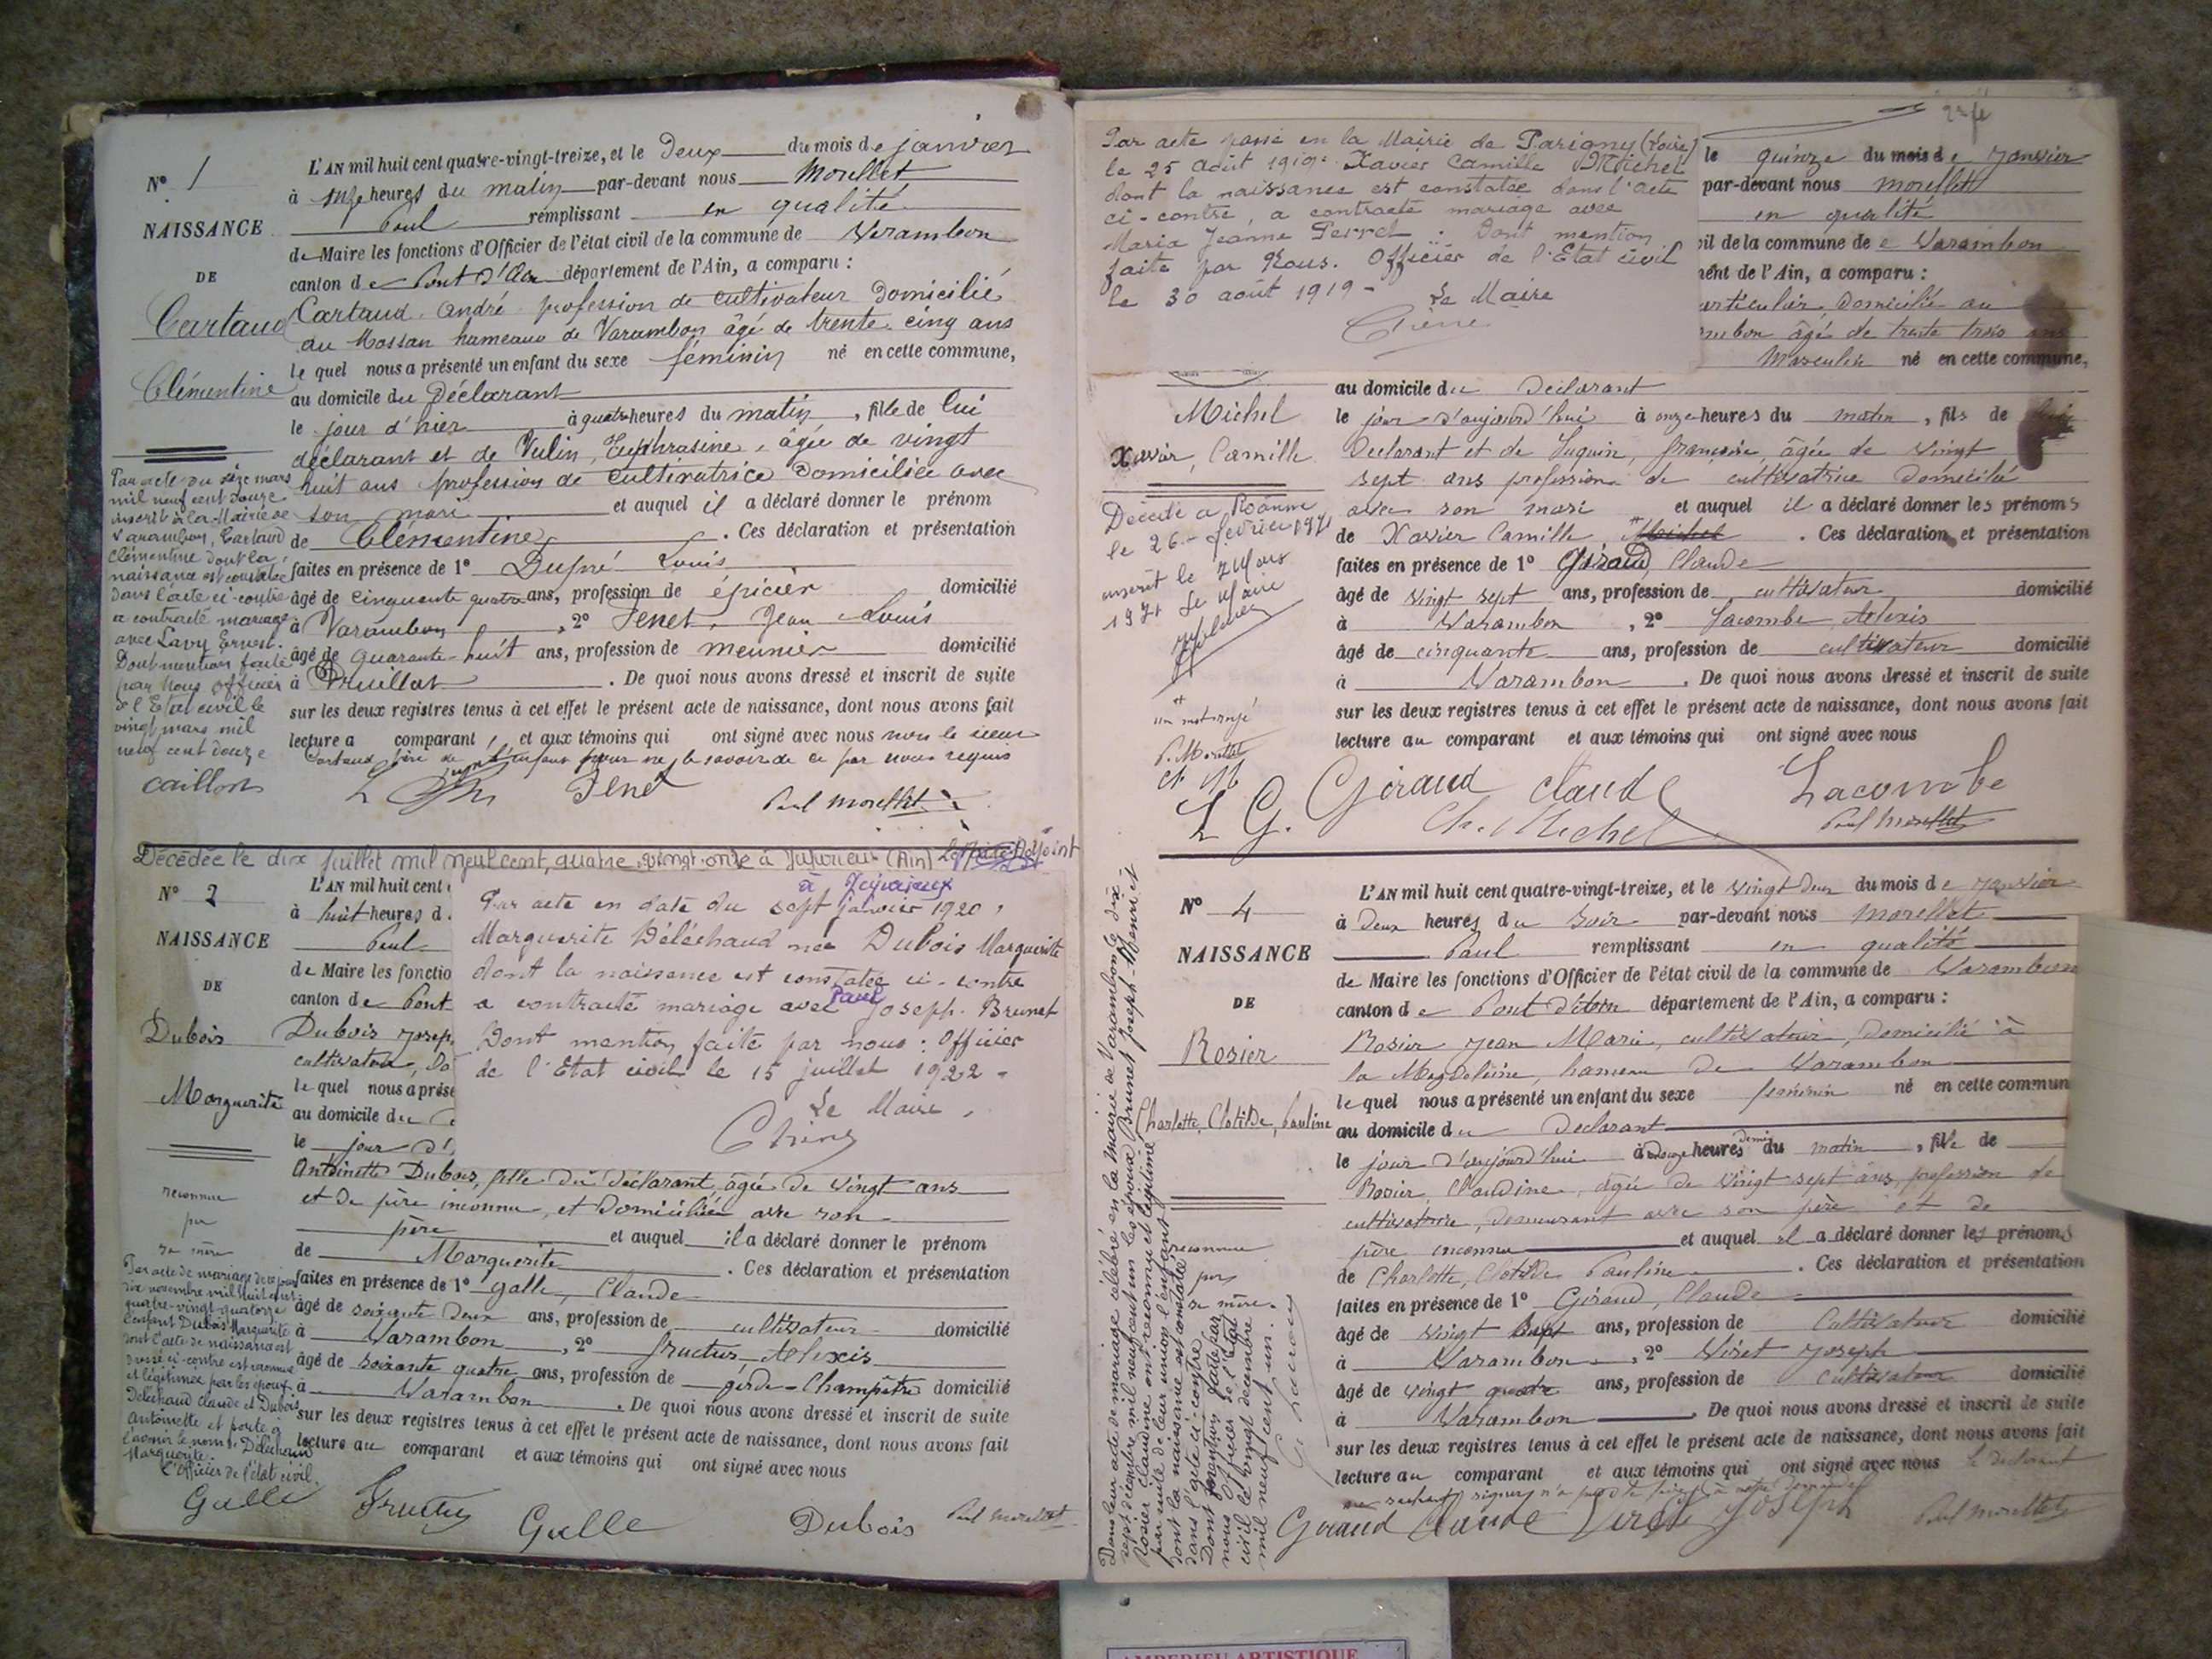 N° 1
NAISSANCE
DE
Cartaud
Clémentine
L'AN mil huit cent quatre-vingt-treize, et le Deux du mois de janvier
à onze heures du matin par-devant nous Morellet
Paul remplissant en qualité
de Maire les fonctions d'Officier de l'état civil de la commune de Varambon
canton de Pont d'Ain département de l'Ain, a comparu :
Cartaud André profession de cultivateur Domicilié
au Mossan hameau de Varambon âgé de trente cinq ans
le quel nous a présenté un enfant du sexe féminin né en cette commune,
au domicile du Déclarant
le jour d'hier à quatre heures du matin, fille de lui
déclarant et de Vulin, Euphrasine, âgée de vingt
huit ans profession de cultivatrice Domiciliée avec
son mari et auquel il a déclaré donner le prénom
de Clémentine . Ces déclaration et présentation
faites en présence de 1° Dupré Louis
âgé de cinquante quatre ans, profession de épicier domicilié
à Varambon , 2° Tenet, Jean Louis
âgé de quarante-huit ans, profession de meunier domicilié
à Druillat . De quoi nous avons dressé et inscrit de suite
sur les deux registres tenus à cet effet le présent acte de naissance, dont nous avons fait
lecture a comparant, et aux témoins qui ont signé avec nous non le sieur
Cartaud père de l'enfant pour ne le savoir de ce par nous requis
Tenet Paul Morellet
Par acte du seize mars
mil neuf cent douze
inscrit à la Mairie de
Varambon, Cartaud
Clémentine dont la
naissance est constatée
dans l'acte ci-contre
a contracté mariage
avec Lavy Ernest.
Dont mention faite
par Nous officier
de l'Etat civil le
vingt mars mil
neuf cent douze
Caillon
Décédée le dix juillet mil neuf cent quatre-vingt-onze à Jujurieux (Ain) Adjoint
N° 2
NAISSANCE
DE
Dubois
Marguerite
L'AN mil huit cent
à huit heures d
Paul
de Maire les fonctio
canton de Pont
Dubois Josep
cultivateur, Do
le quel nous a prése
au domicile du
le jour d'
Par acte en date du sept janvier 1920, à Jujurieux
Marguerite Déléchaud née Dubois Marguerite
dont la naissance est constatée ci-contre
a contracté mariage avec Paul Joseph Brunet
Dont mention faite par nous : Officier
de l'Etat civil le 15 juillet 1922 -
Le Maire,
Antoinette Dubois, fille du déclarant, âgée de vingt ans
et de père inconnu, et domiciliée avec son
père et auquel il a déclaré donner le prénom
de Marguerite . Ces déclaration et présentation
faites en présence de 1° Galle, Claude
âgé de soixante deux ans, profession de cultivateur domicilié
à Varambon , 2° Fructus, Alexis
âgé de soixante quatre ans, profession de garde-champêtre domicilié
à Varambon . De quoi nous avons dressé et inscrit de suite
sur les deux registres tenus à cet effet le présent acte de naissance, dont nous avons fait
lecture au comparant et aux témoins qui ont signé avec nous
reconnue
par
sa mère
Par acte de mariage de ce jour
dix novembre mil huit cent
quatre-vingt-quatorze
l'enfant Dubois Marguerite
dont l'acte de naissance est
dressé ci-contre est reconnue
et légitimée par les époux
Déléchaud Claude et Dubois
Antoinette et porte à
l'avenir le nom de Déléchaud
Marguerite.
L'Officier de l'état civil.
Galle Fructus Galle Dubois Paul Morellet
Par acte passé en la Mairie de Parigny (Loire)
le 25 Août 1919 : Xavier Camille Michel
dont la naissance est constatée dans l'acte
ci-contre, a contracté mariage avec
Maria Jeanne Perret : Dont mention
faite par Nous. Officier de l'Etat civil
le 30 août 1919 -
Le Maire
le quinze du mois de Janvier
par-devant nous Morellet
en qualité
il de la commune de Varambon
ment de l'Ain, a comparu :
articulier, Domicilié au
mbon âgé de trente trois ans
Masculin né en cette commune,
Michel
Xavier, Camille
au domicile du Déclarant
le jour d'aujourd'hui à onze heures du matin, fils de
Déclarant et de Juquin, Françoise, âgée de vingt
sept ans profession de cultivatrice Domicilié
avec son mari et auquel il a déclaré donner les prénoms
de Xavier Camille, Michel . Ces déclaration et présentation
faites en présence de 1° Giraud, Claude
âgé de vingt sept ans, profession de cultivateur domicilié
à Varambon , 2° Lacombe Alexis
âgé de cinquante ans, profession de cultivateur domicilié
à Varambon . De quoi nous avons dressé et inscrit de suite
sur les deux registres tenus à cet effet le présent acte de naissance, dont nous avons fait
lecture au comparant et aux témoins qui ont signé avec nous
Décédé à Roanne
le 26 février 1971
inscrit le 2 Mars
1971 Le Maire
un mot rayé
P. Morellet
L G. Giraud Claude Lacombe
Ch. Michel Paul Morellet
N° 4
NAISSANCE
DE
Rosier
Charlotte, Clotilde, Pauline
L'AN mil huit cent quatre-vingt-treize, et le vingt deux du mois de Janvier
à Deux heures du soir par-devant nous Morellet
Paul remplissant en qualité
de Maire les fonctions d'Officier de l'état civil de la commune de Varambon
canton de Pont d'Ain département de l'Ain, a comparu :
Rosier Jean Marie, cultivateur, domicilié à
la Magdeleine, hameau de Varambon
le quel nous a présenté un enfant du sexe féminin né en cette commun
au domicile du Déclarant
le jour d'aujourd'hui à Douze heures demie du matin, fille de
Rosier, Claudine, âgée de vingt sept ans, profession de
cultivatrice, demeurant avec son père et de
père inconnu et auquel il a déclaré donner les prénoms
de Charlotte, Clotilde Pauline . Ces déclaration et présentation
faites en présence de 1° Giraud, Claude
âgé de vingt sept ans, profession de Cultivateur domicilié
à Varambon , 2° Viret Joseph
âgé de vingt quatre ans, profession de Cultivateur domicilié
à Varambon . De quoi nous avons dressé et inscrit de suite
sur les deux registres tenus à cet effet le présent acte de naissance, dont nous avons fait
lecture au comparant et aux témoins qui ont signé avec nous le déclarant
reconnue
par
sa mère.
Dans leur acte de mariage célébré en la Mairie de Varambon le dix-
sept décembre mil neuf cent un les époux Brunet Joseph-Henri et
Rosier Claudine ont reconnu et légitimé
par suite de leur union l'enfant
dont la naissance est constatée
dans l'acte ci-contre.
Dont mention faite par
nous Officier de l'Etat
civil le vingt décembre
mil neuf cent un.
Giraud Claude Viret Joseph Paul Morellet
AMBERIEU ARTISTIQUE